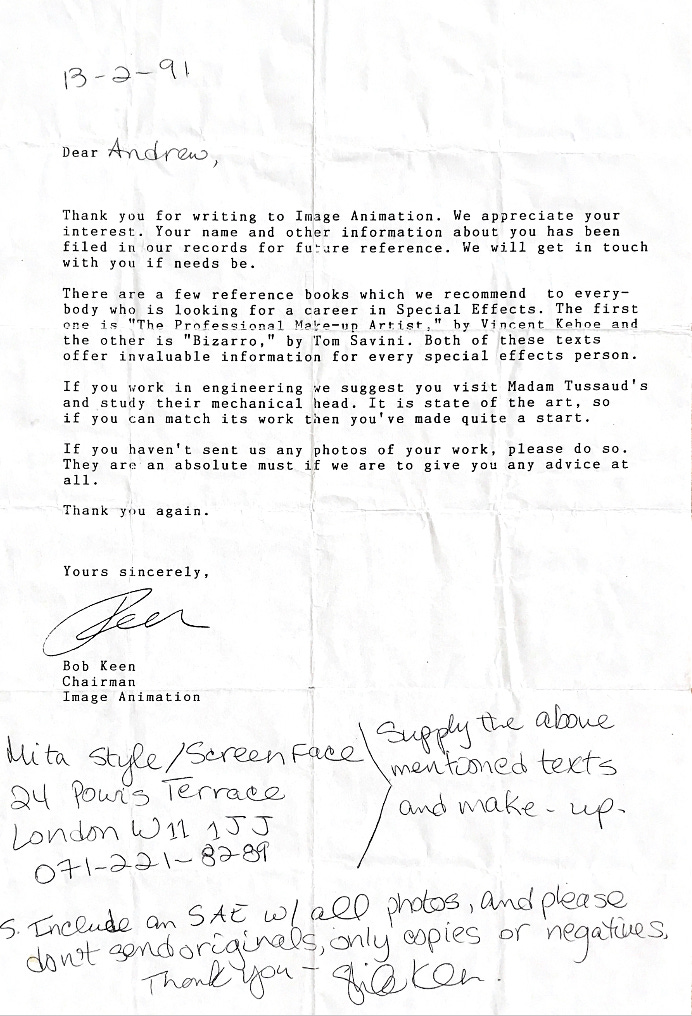 13-2-91
Dear Andrew,
Thank you for writing to Image Animation. We appreciate your
interest. Your name and other information about you has been
filed in our records for future reference. We will get in touch
with you if needs be.
There are a few reference books which we recommend to every-
body who is looking for a career in Special Effects. The first
one is "The Professional Make-up Artist," by Vincent Kehoe and
the other is "Bizarro," by Tom Savini. Both of these texts
offer invaluable information for every special effects person.
If you work in engineering we suggest you visit Madam Tussaud's
and study their mechanical head. It is state of the art, so
if you can match its work then you've made quite a start.
If you haven't sent us any photos of your work, please do so.
They are an absolute must if we are to give you any advice at
all.
Thank you again.
Yours sincerely,
Keen
Bob Keen
Chairman
Image Animation
Mita Style/Screen Face
24 Powis Terrace
London W11 1JJ
071-221-8289
Supply the above
mentioned texts
and make-up.
S. Include an SAE w/ all photos, and please
don't send originals, only copies or negatives.
Thank you -